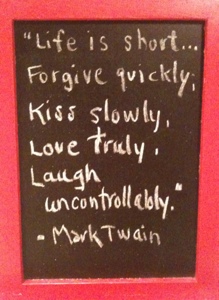 "Life is short...
Forgive quickly,
Kiss slowly,
Love truly,
Laugh
uncontrollably."
- Mark Twain